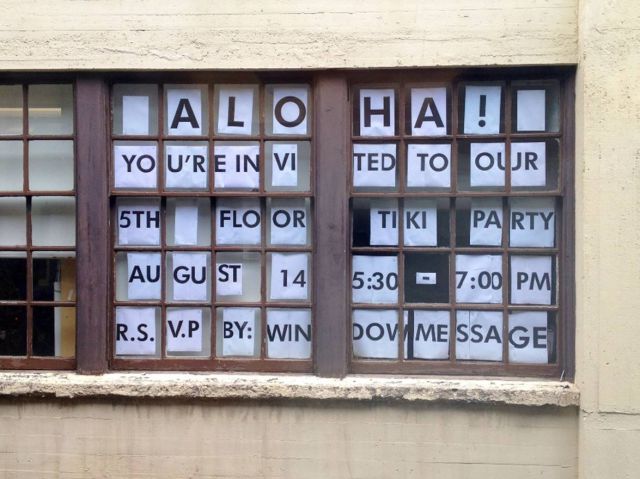 ALOHA!
YOU'RE INVITED TO OUR
5TH FLOOR TIKI PARTY
AUGUST 14 5:30 - 7:00 PM
R.S.V.P BY: WINDOW MESSAGE